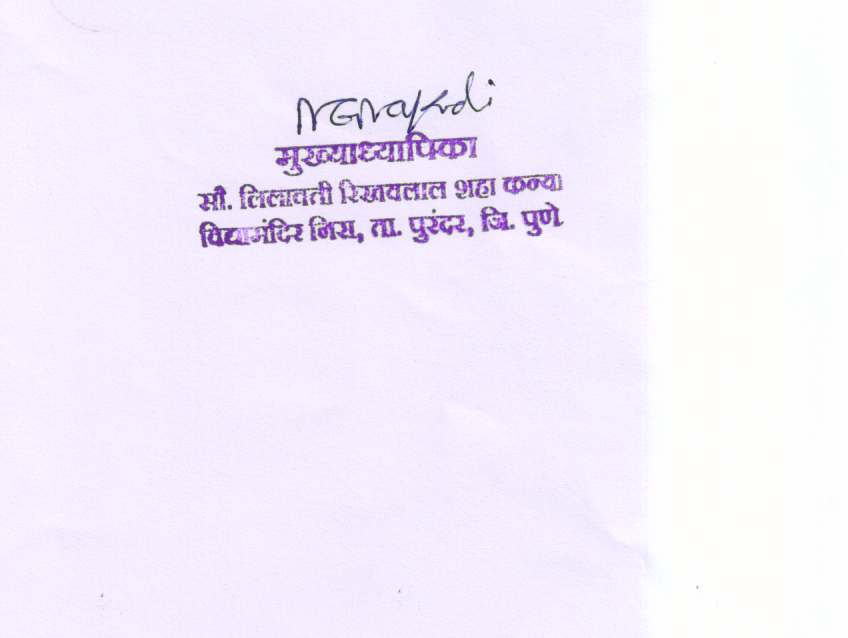 मुख्याध्यापिका
सौ. लिलावती रिखवलाल शहा कन्या
विद्यामंदिर निरा, ता. पुरंदर, जि. पुणे.